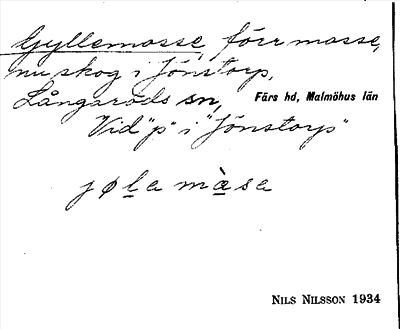 Gyllemosse, förr mosse,
nu skog i Jönstorp,
Långaröds sn, Färs hd, Malmöhus län
Vid "p" i "Jönstorp"
jøl̲a mà̲sa
NILS NILSSON 1934